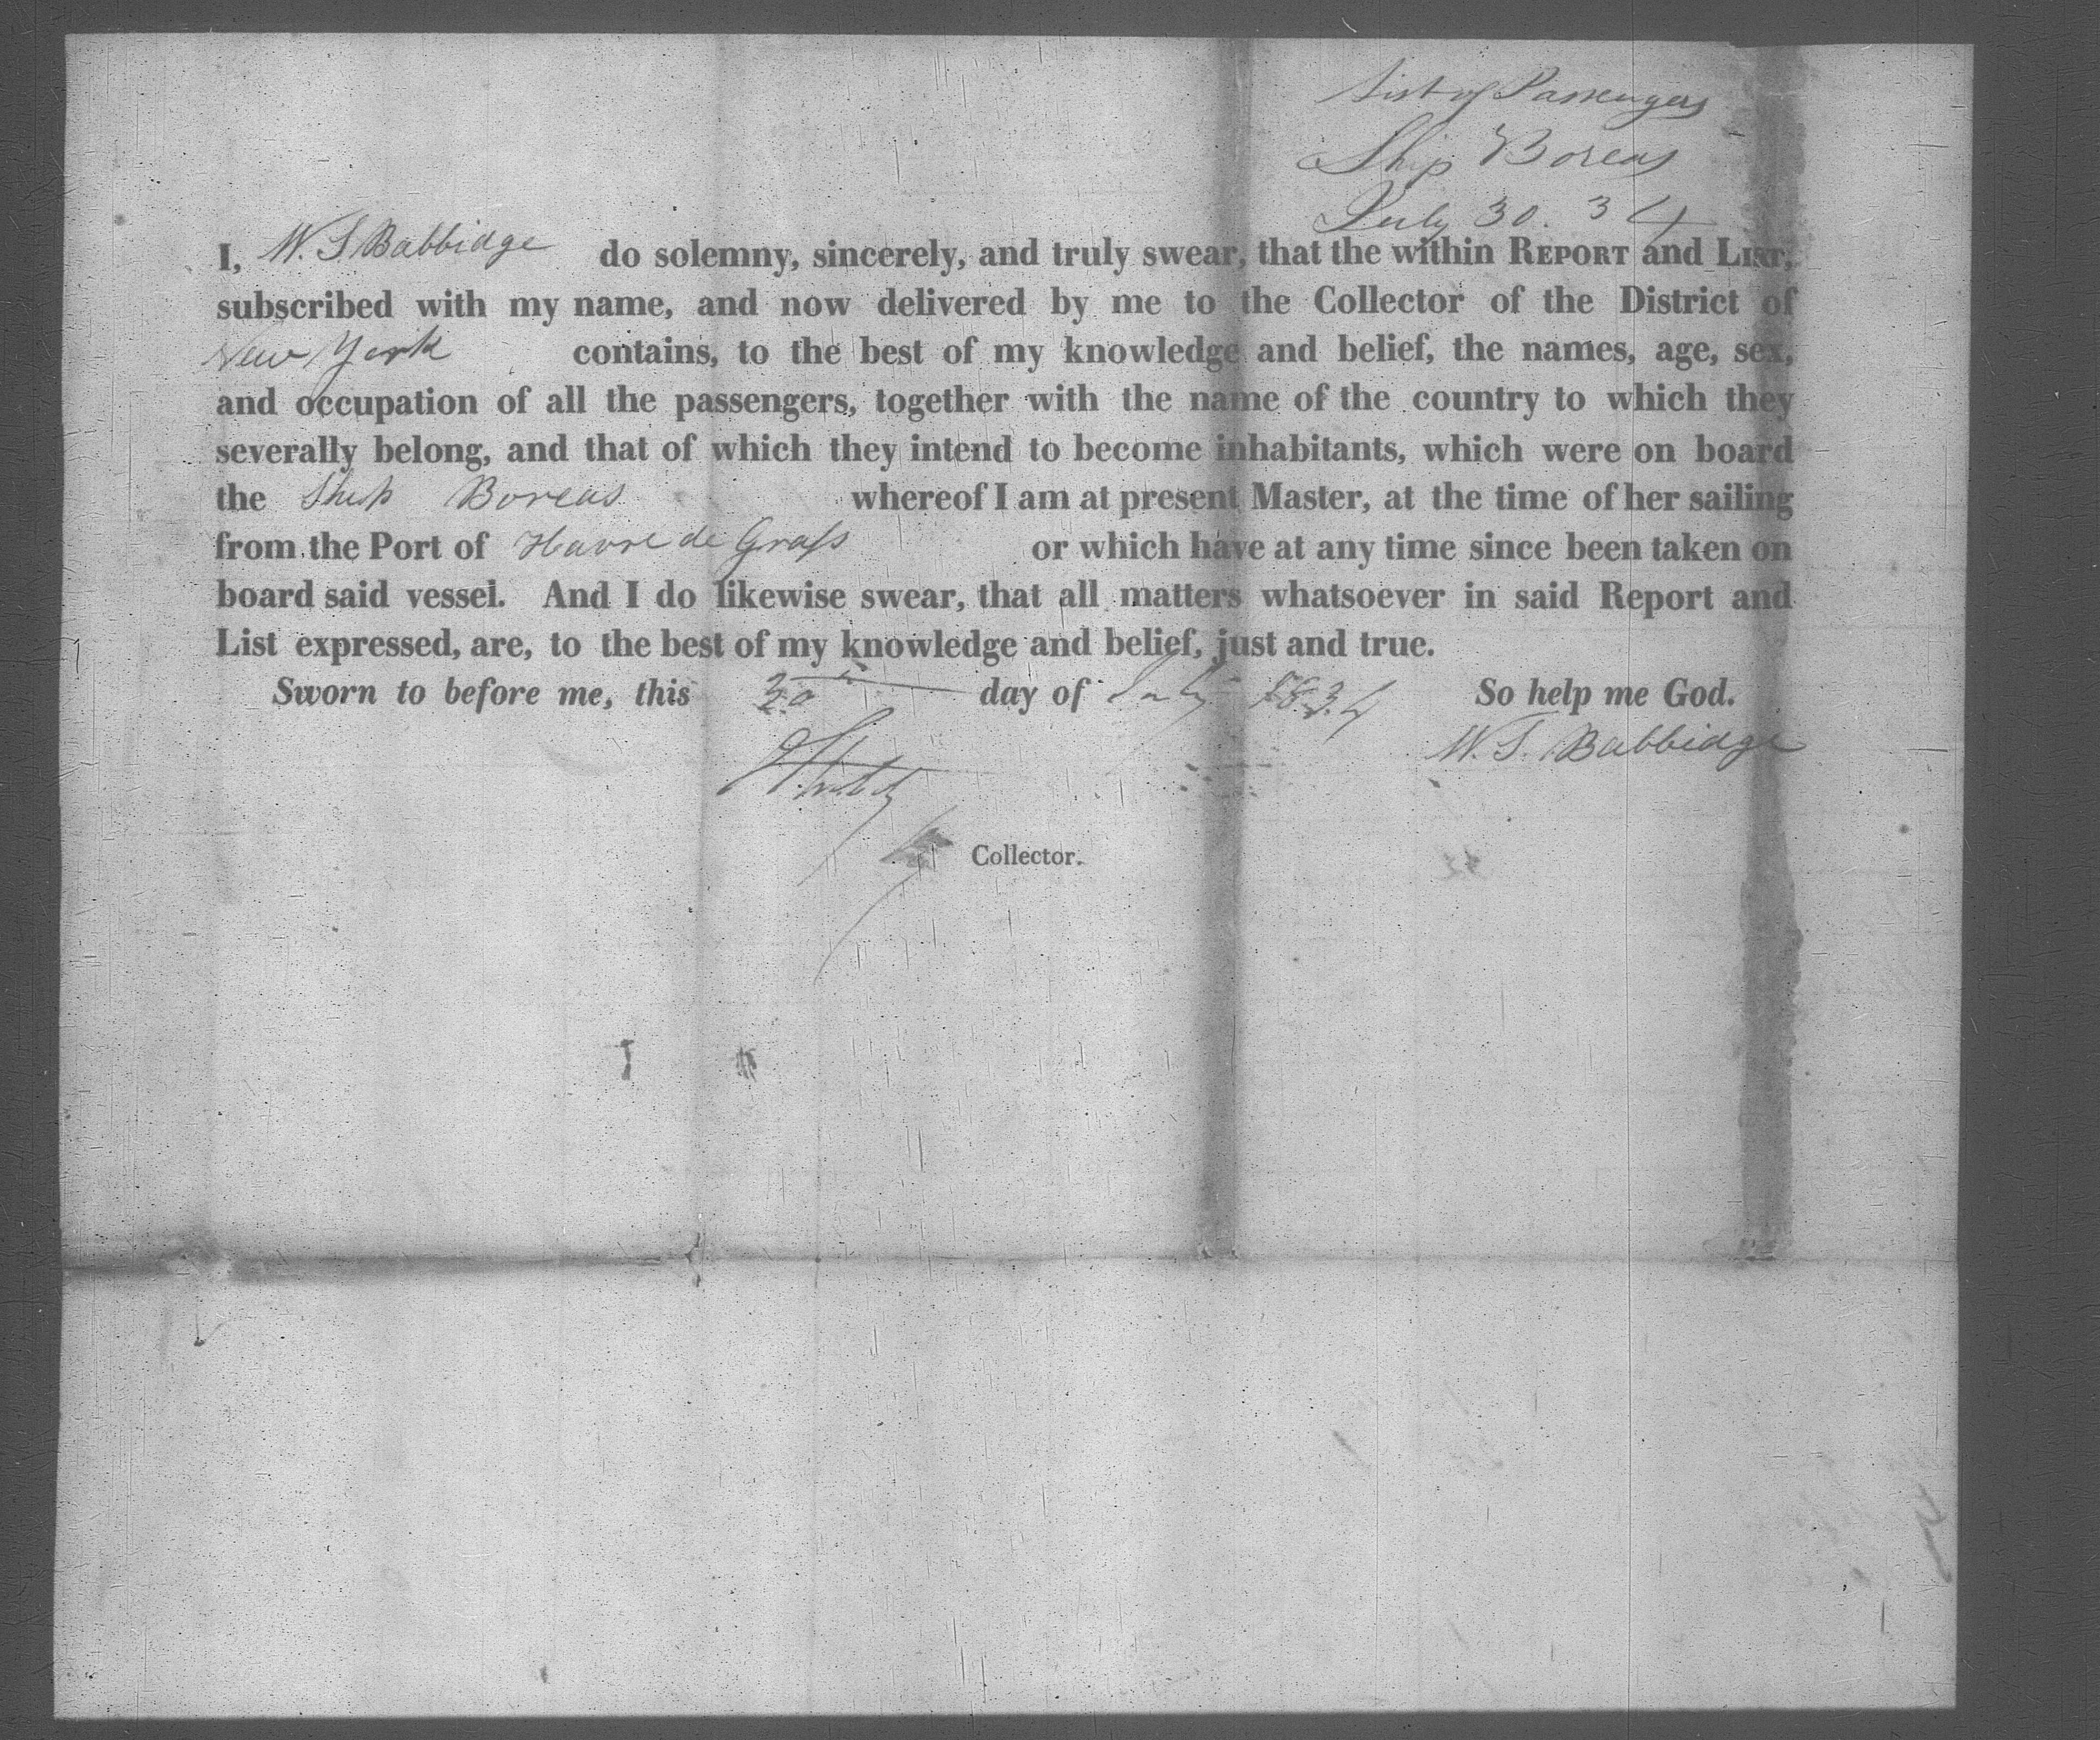 List of Passengers
Ship Boreas
July 30. 34
I, W. S Babbidge do solemny, sincerely, and truly swear, that the within REPORT and LIST,
subscribed with my name, and now delivered by me to the Collector of the District of
New York contains, to the best of my knowledge and belief, the names, age, sex,
and occupation of all the passengers, together with the name of the country to which they
severally belong, and that of which they intend to become inhabitants, which were on board
the Ship Boreas whereof I am at present Master, at the time of her sailing
from the Port of Havre de Grass or which have at any time since been taken on
board said vessel. And I do likewise swear, that all matters whatsoever in said Report and
List expressed, are, to the best of my knowledge and belief, just and true.
Sworn to before me, this 30 day of July 1834 So help me God.
W. S. Babbidge
Collector.